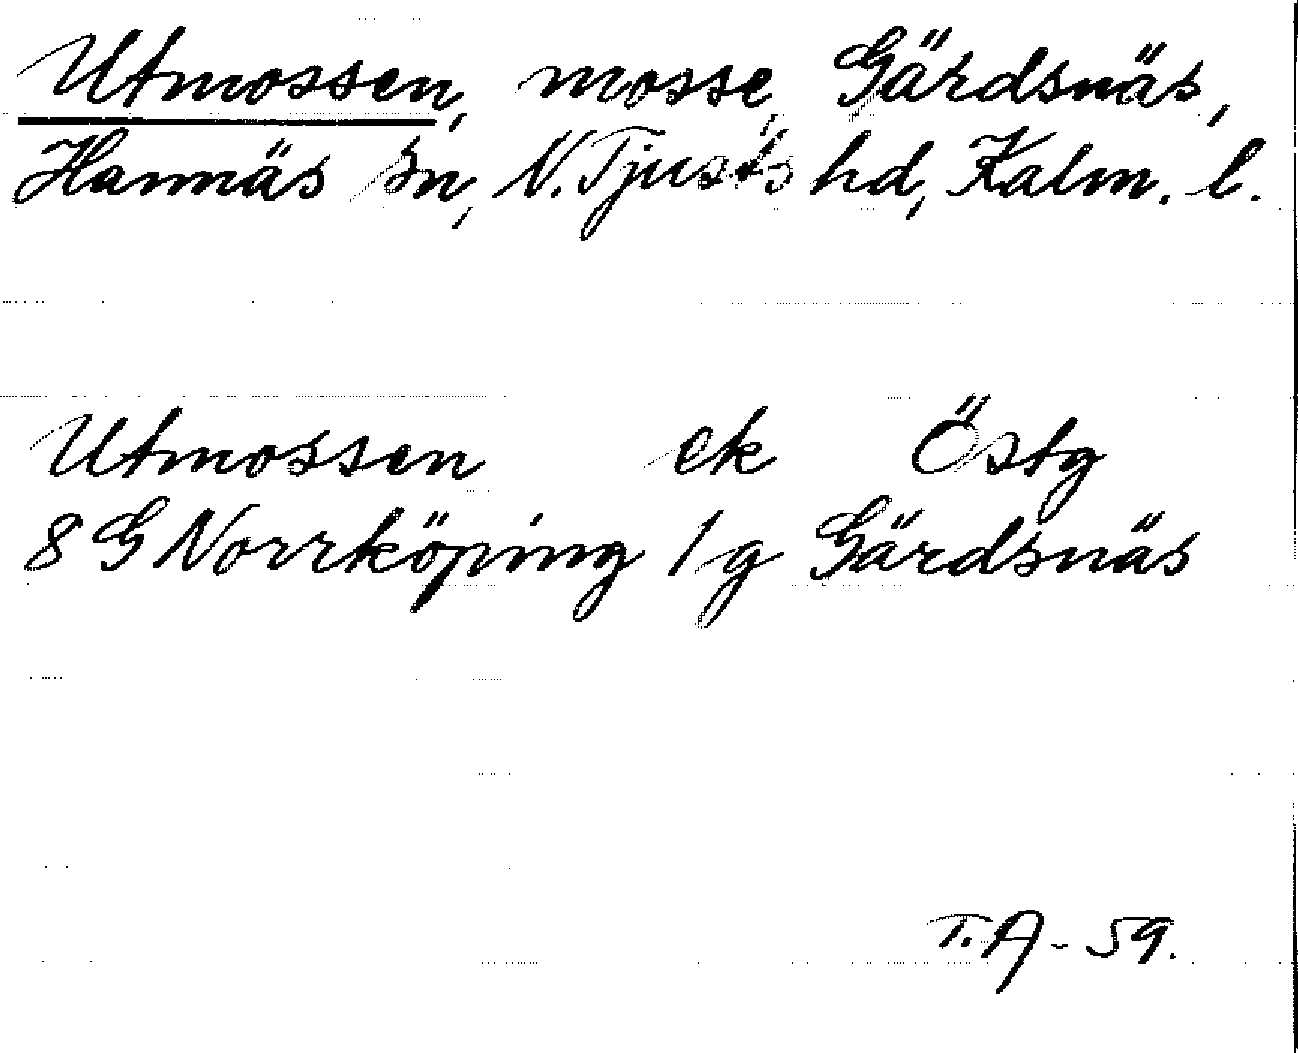 Utmossen, mosse, Gärdsnäs,
Hannäs sn, N. Tjusts hd, Kalm. l.
Utmossen ek Östg
8 G Norrköping 1 g Gärdsnäs
T. A - 59.